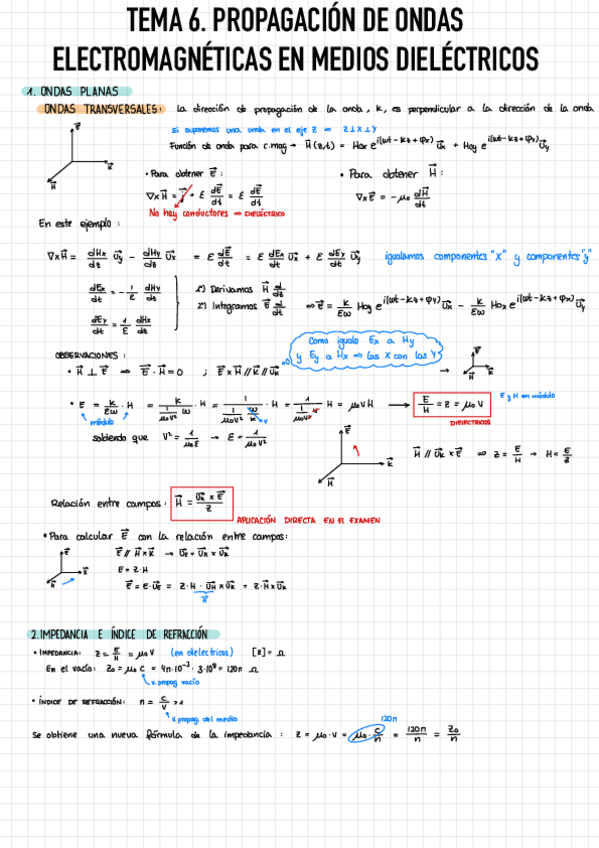 TEMA 6. PROPAGACIÓN DE ONDAS
ELECTROMAGNÉTICAS EN MEDIOS DIELÉCTRICOS
1. ONDAS PLANAS
ONDAS TRANSVERSALES: La dirección de propagación de la onda, K, es perpendicular a la dirección de la onda
Si suponemos una onda en el eje Z ⇒ Z⊥X⊥Y
Función de onda para c.mag → H⃗(z,t) = Hox e^i(ωt-kz+φx) u⃗x + Hoy e^i(ωt-kz+φy) u⃗y
E⃗
K⃗
H⃗
• Para obtener E⃗ :
• Para obtener H⃗ :
∇xH⃗ = J⃗ + ε dE⃗/dt = ε dE⃗/dt
∇xE⃗ = -μo dH⃗/dt
No hay conductores ⇒ DIELÉCTRICO
En este ejemplo :
∇xH⃗ = dHx/dz u⃗y - dHy/dz u⃗x = ε dE⃗/dt = ε dEx/dt u⃗x + ε dEy/dt u⃗y igualamos componentes "x" y componentes "y"
dEx/dt = -1/ε dHy/dt
1º) Derivamos H⃗ d/dz
2º) Integramos E⃗ d/dt ⇒ E⃗ = K/εω Hoy e^i(ωt-kz+φy) u⃗x - K/εω Hox e^i(ωt-kz+φx) u⃗y
dEy/dt = 1/ε dHx/dt
Como igualo Ex a Hy
y Ey a Hx ⇒ las X con las Y
OBSERVACIONES :
• H⃗ ⊥ E⃗ ⇒ E⃗ · H⃗ = 0 ; E⃗ x H⃗ // K⃗ // u⃗k →
• E = K/εω · H = K/(1/μoV² ω) · H = 1/(1/μoV² ω/K) · H = 1/(1/μoV² V) · H = μoVH → E/H = Z = μo V
E y H en módulo
módulo
DIELECTRICOS
sabiendo que V² = 1/μoε → ε = 1/μoV²
E⃗
K⃗
H⃗
H⃗ // u⃗k x E⃗ ⇒ Z = E/H → H = E/Z
Relación entre campos: H⃗ = u⃗k x E⃗/Z
APLICACIÓN DIRECTA EN El EXAMEN
• Para calcular E⃗ con la relación entre campos:
E⃗ // H⃗ x K⃗ → u⃗E = u⃗H x u⃗K
E = Z · H
E⃗ = E · u⃗E = Z · H · u⃗H x u⃗K = Z · H⃗ x u⃗K
H⃗
2. IMPEDANCIA E ÍNDICE DE REFRACCIÓN
• IMPEDANCIA: Z = E/H = μo V (en dieléctricos) [Z] = Ω
En el vacío: Zo = μo C = 4π·10⁻⁷ · 3·10⁸ = 120π Ω
v. propag vacío
• ÍNDICE DE REFRACCIÓN: n = C/V > 1
v. propag. del medio
120π
Se obtiene una nueva fórmula de la impedancia : Z = μo · V = μo · C/n = 120π/n = Zo/n